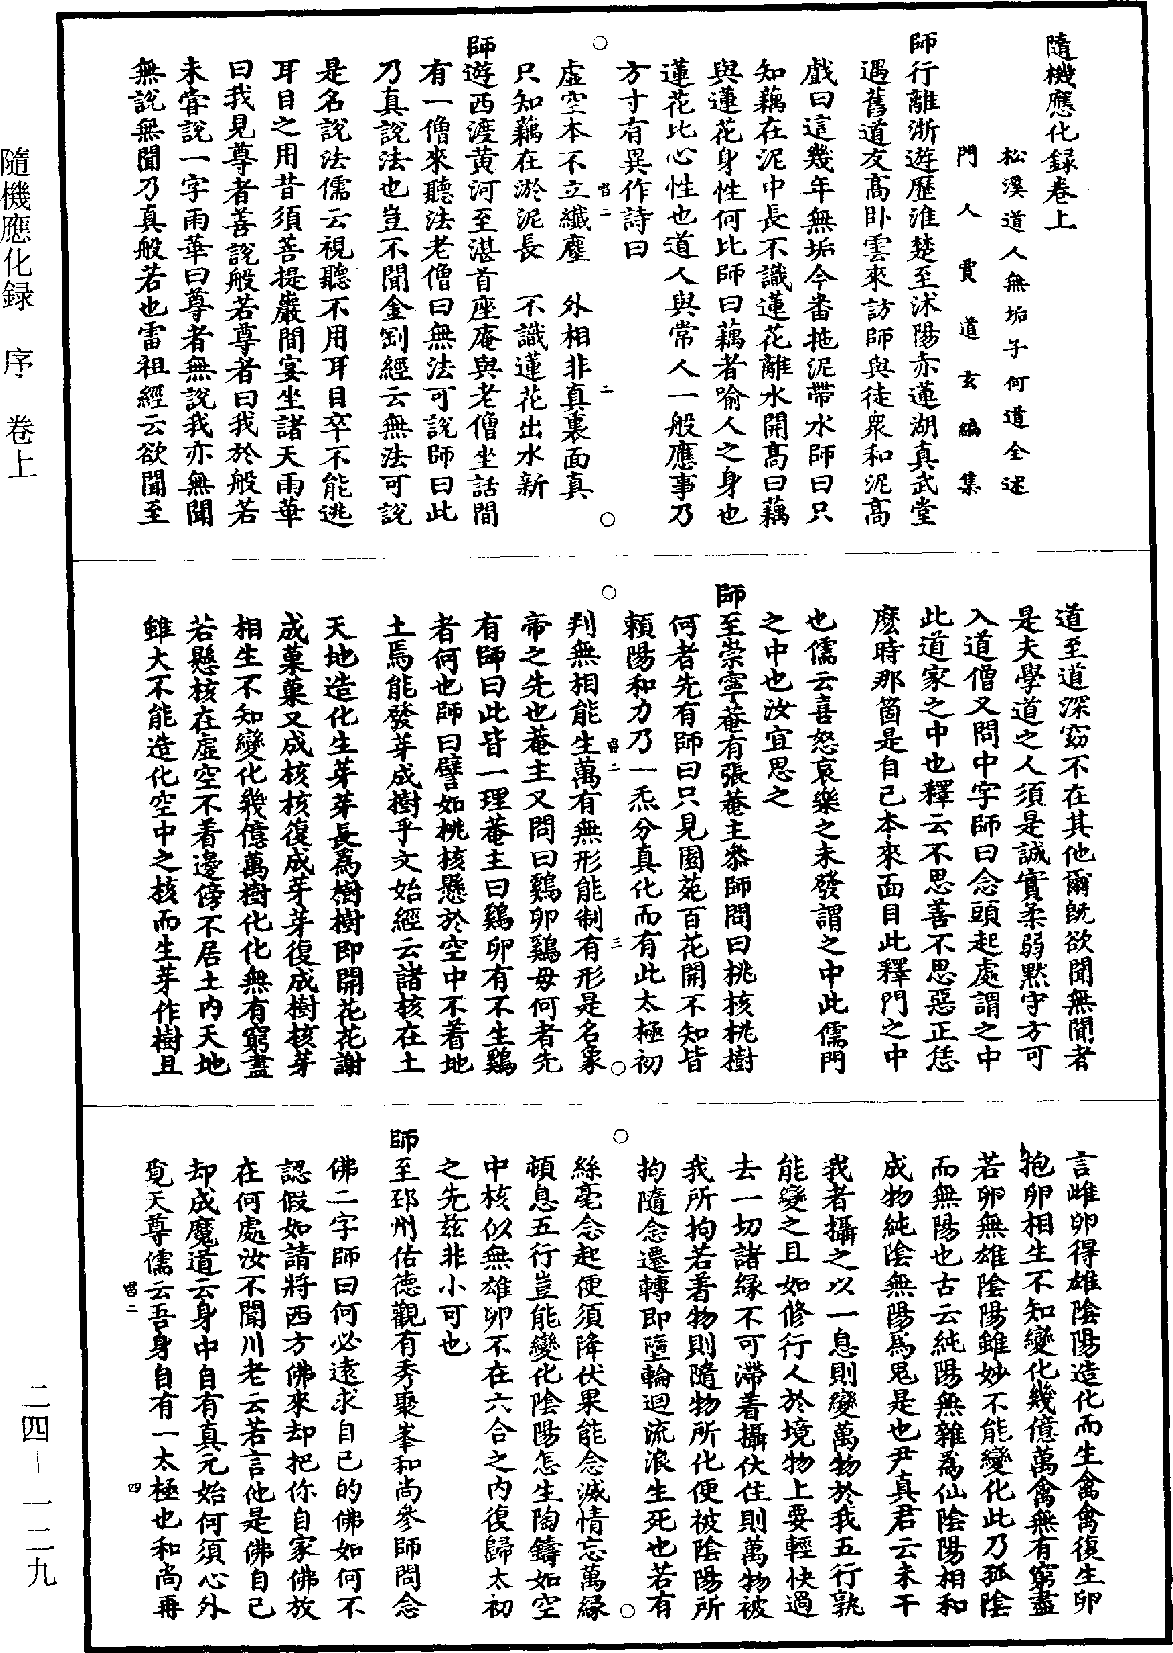 隨機應化録卷上
松溪道人無垢子何道全述
門人賈道玄編集
師行離浙遊歷淮楚至沭陽赤蓮湖真武堂
遇舊道友高卧雲來訪師與徒衆和泥高
戲曰這幾年無垢今番拖泥帶水師曰只
知藕在泥中長不識蓮花離水開高曰藕
與蓮花身性何比師曰藕者喻人之身也
蓮花比心性也道人與常人一般應事乃
方寸有異作詩曰
虛空本不立纖塵　外相非真裏面真
只知藕在淤泥長　不識蓮花出水新
師遊西渡黄河至湛首座庵與老僧坐話間
有一僧來聽法老僧曰無法可說師曰此
乃真說法也豈不聞金剛經云無法可說
是名說法儒云視聽不用耳目卒不能逃
耳目之用昔須菩提巖間宴坐諸天雨華
曰我見尊者善說般若尊者曰我於般若
未甞說一字雨華曰尊者無說我亦無聞
無說無聞乃真般若也雷祖經云欲聞至
道至道深窈不在其他爾旣欲聞無聞者
是夫學道之人須是誠實柔弱默守方可
入道僧又問中字師曰念頭起處謂之中
此道家之中也釋云不思善不思惡正恁
麽時那箇是自己本來面目此釋門之中
也儒云喜怒哀樂之未發謂之中此儒門
之中也汝宜思之
師至崇寧菴有張菴主叅師問曰桃核桃樹
何者先有師曰只見園苑百花開不知皆
賴陽和力乃一炁分真化而有此太極初
判無相能生萬有無形能制有形是名象
帝之先也菴主又問曰鷄卵鷄母何者先
有師曰此皆一理菴主曰鷄卵有不生鷄
者何也師曰譬如桃核懸於空中不着地
土焉能發芽成樹乎文始經云諸核在土
天地造化生芽芽長爲樹樹即開花花謝
成菓菓又成核核復成芽芽復成樹核芽
相生不知變化幾億萬樹化化無有窮盡
若懸核在虛空不着邊傍不居土内天地
雖大不能造化空中之核而生芽作樹且
言雌卵得雄陰陽造化而生禽禽復生卵
抱卵相生不知變化幾億萬禽無有窮盡
若卵無雄陰陽雖妙不能變化此乃孤陰
而無陽也古云純陽無雜爲仙陰陽相和
成物純陰無陽爲鬼是也尹真君云未干
我者攝之以一息則變萬物於我五行孰
能變之且如修行人於境物上要輕快過
去一切諸緣不可滯着攝伏住則萬物被
我所拘若着物則隨物所化便被陰陽所
拘隨念遷轉即墮輪迴流浪生死也若有
絲毫念起便須降伏果能念滅情忘萬緣
頓息五行豈能變化陰陽怎生陶鑄如空
中核似無雄卵不在六合之内復歸太初
之先玆非小可也
師至邳州佑德觀有秀聚峯和尚參師問念
佛二字師曰何必遠求自己的佛如何不
認假如請將西方佛來却把你自家佛放
在何處汝不聞川老云若言他是佛自己
却成魔道云身中自有真元始何須心外
覓天尊儒云吾身自有一太極也和尚再
隨機應化録　序　卷上
二四－一二九